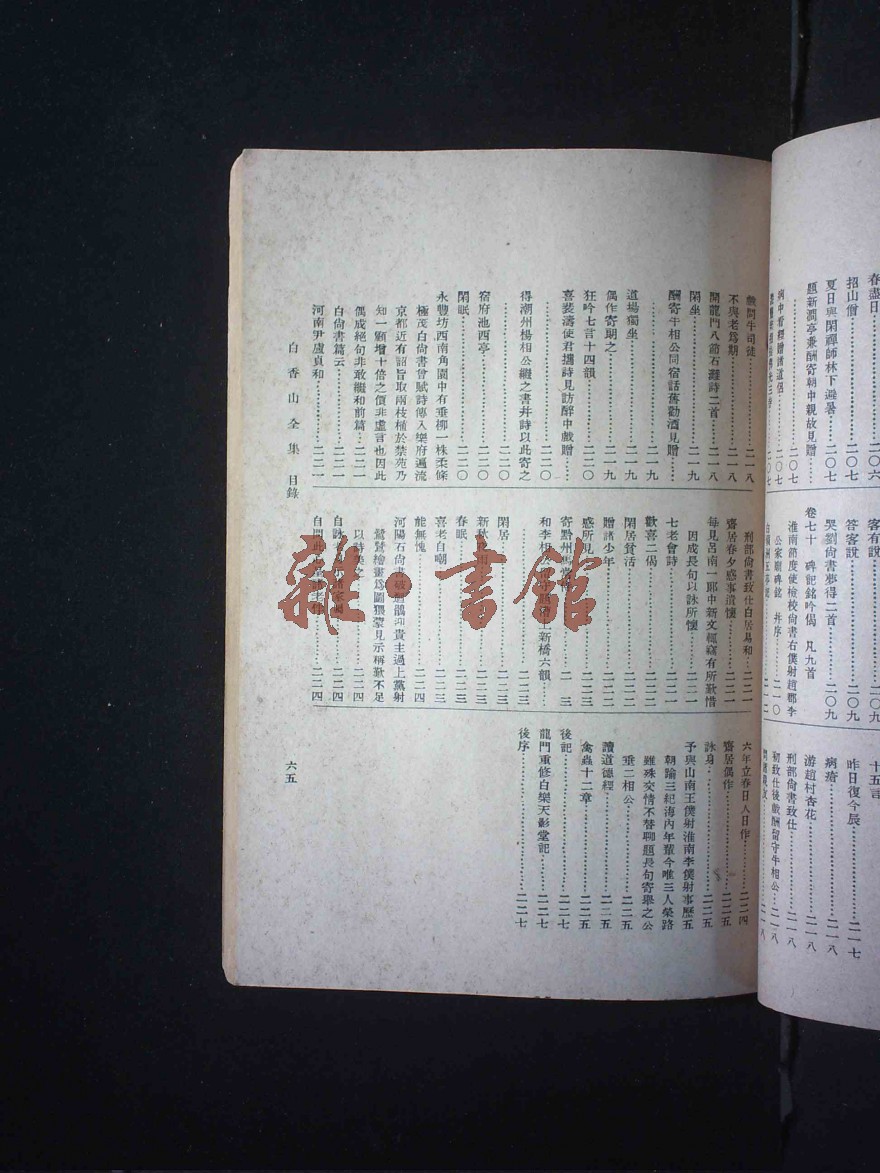 春盡日……二〇六
招山僧……二〇七
夏日與閑禪師林下避暑……二〇七
題新澗亭兼酬寄朝中親故見贈
……二〇七
客有說……二〇九
答客說……二〇九
哭劉尚書夢得二首……二〇九
卷七十　碑記銘吟偈　凡九首
淮南節度使檢校尚書右僕射趙郡李
公家廟碑銘　并序……二一〇
十五言
昨日復今辰……二一七
病瘡……二一八
游趙村杏花……二一八
刑部尚書致仕……二一八
初致仕後戲酬留守牛相公
戲問牛司徒……二一八
不與老爲期……二一八
開龍門八節石灘詩二首……二一八
閑坐……二一九
酬寄牛相公同宿話舊勸酒見贈……
……二一九
道場獨坐……二一九
偶作寄朗之……二一九
狂吟七言十四韻……二二〇
喜裴濤使君攜詩見訪醉中戲贈……
……二二〇
得潮州楊相公繼之書并詩以此寄之
……二二〇
宿府池西亭……二二〇
閑眠……二二〇
永豐坊西南角園中有垂柳一株柔條
極茂白尚書曾賦詩傳入樂府遍流
京都近有詔旨取兩枝植於禁苑乃
知一顧增十倍之價非虛言也因此
偶成絕句非敢繼和前篇……二二一
白尚書篇云……二二一
河南尹盧貞和……二二一
刑部尚書致仕白居易和……二二一
齋居春夕感事遣懷……二二一
每見呂南一郎中新文輒竊有所歎惜
因成長句以詠所懷……二二一
七老會詩……二二一
歡喜二偈……二二二
閑居貧活……二二二
贈諸少年……二二二
感所見……二二三
寄黔州馬常侍……二 三
和李相
上新橋六韻……
……二二三
閑居……二二三
新秋
雨……二二三
春眠……二二三
喜老自嘲……二二三
能無愧……二二四
河陽石尚書破迴鶻迎貴主過上黨射
鷺鷥繪畫爲圖猥蒙見示稱歎不足
以詩美之……二二四
自詠
示
家
……二二四
自問此心呈諸老伴……二二四
六年立春日人日作……二二四
齋居偶作……二二五
詠身……二二五
予與山南王僕射淮南李僕射事歷五
朝踰三紀海內年輩今唯三人榮路
雖殊交情不替聊題長句寄舉之公
垂二相公……二二五
讀道德經……二二五
禽蟲十二章……二二五
後記……二二七
龍門重修白樂天影堂記……二二七
後序……二二七
白香山全集　目錄
六五
雜·書館